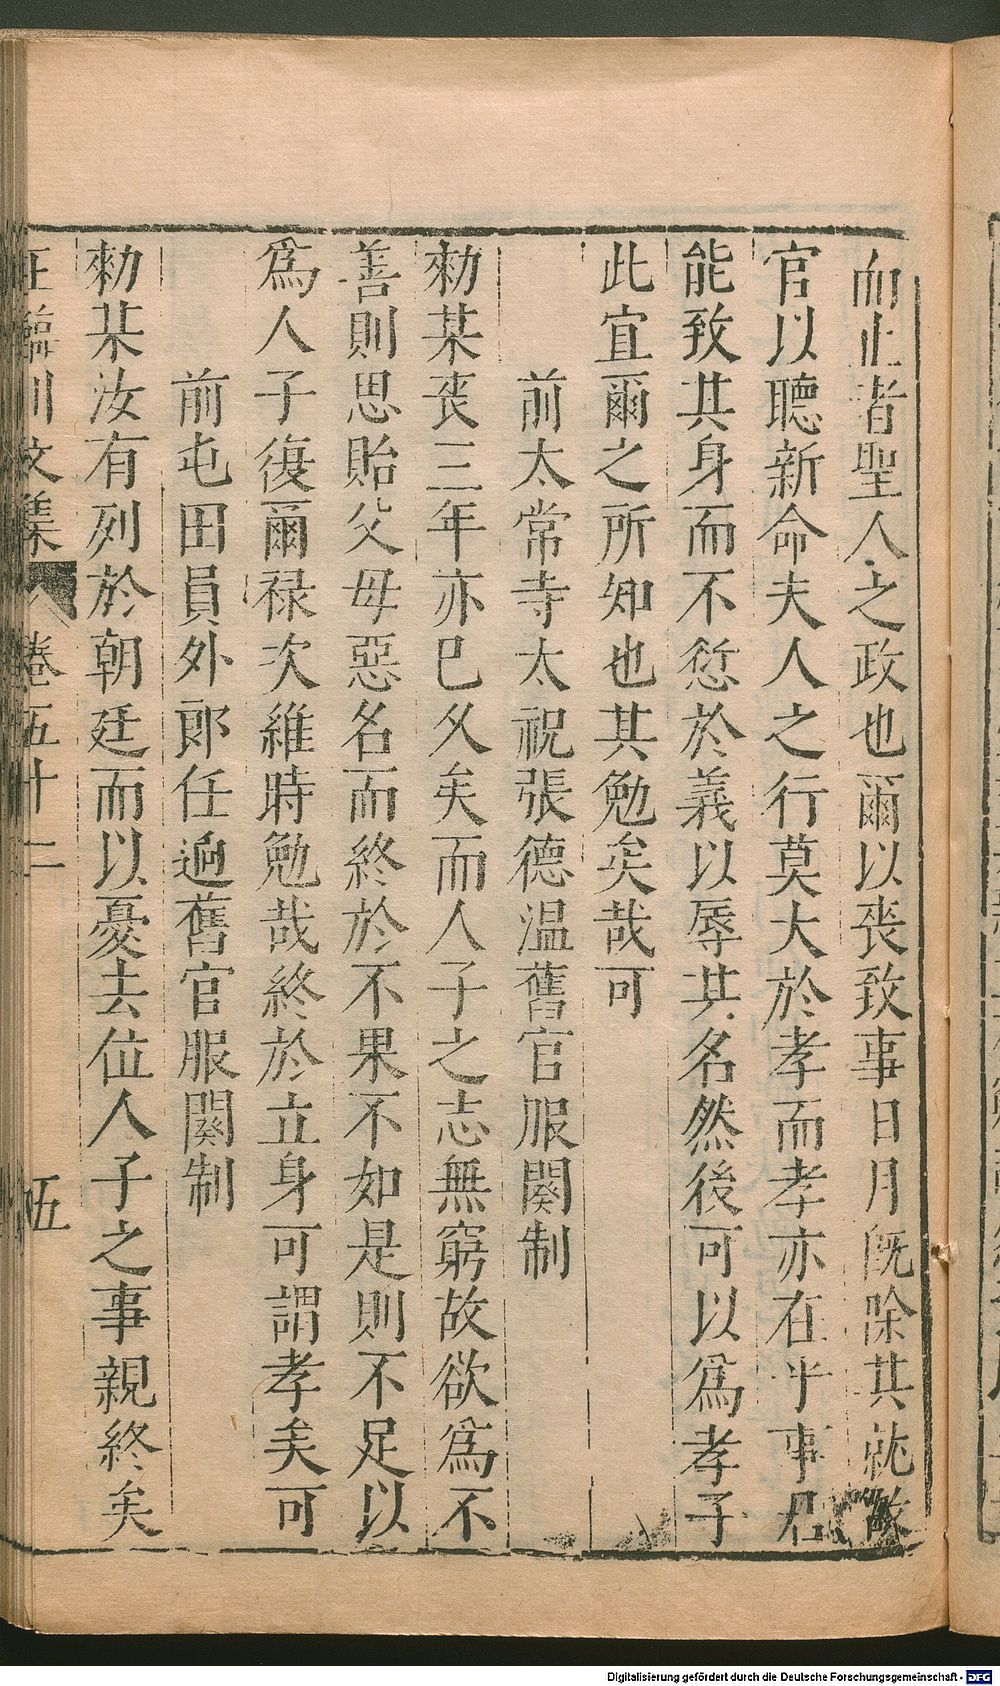 而止者聖人之政也爾以喪致事日月既除其就
官以聽新命夫人之行莫大於孝而孝亦在乎事君
能致其身而不愆於義以辱其名然後可以爲孝子
此宜爾之所知也其勉矣哉可
前太常寺太祝張德温舊官服闋制
勑某喪三年亦已久矣而人子之志無窮故欲爲不
善則思貽父母惡名而終於不果不如是則不足以
爲人子復爾禄次維時勉哉終於立身可謂孝矣可
前屯田員外郎任逈舊官服闋制
勑某汝有列於朝廷而以憂去位人子之事親終矣
王臨川文集 卷五十二 五
Digitalisierung gefördert durch die Deutsche Forschungsgemeinschaft - DFG